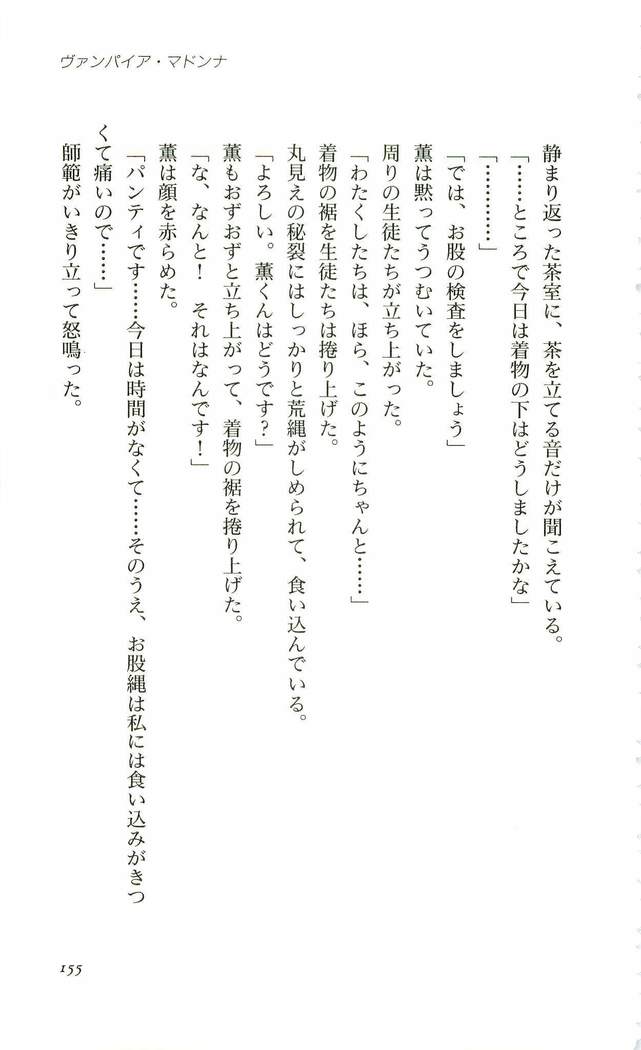 ヴァンパイア・マドンナ
静まり返った茶室に、茶を立てる音だけが聞こえている。
「……ところで今日は着物の下はどうしましたかな」
「…………」
「では、お股の検査をしましょう」
薫は黙ってうつむいていた。
周りの生徒たちが立ち上がった。
「わたくしたちは、ほら、このようにちゃんと……」
着物の裾を生徒たちは捲り上げた。
丸見えの秘裂にはしっかりと荒縄がしめられて、食い込んでいる。
「よろしい。薫くんはどうです？」
薫もおずおずと立ち上がって、着物の裾を捲り上げた。
「な、なんと！　それはなんです！」
薫は顔を赤らめた。
「パンティです……今日は時間がなくて……そのうえ、お股縄は私には食い込みがきつ
くて痛いので……」
師範がいきり立って怒鳴った。
155